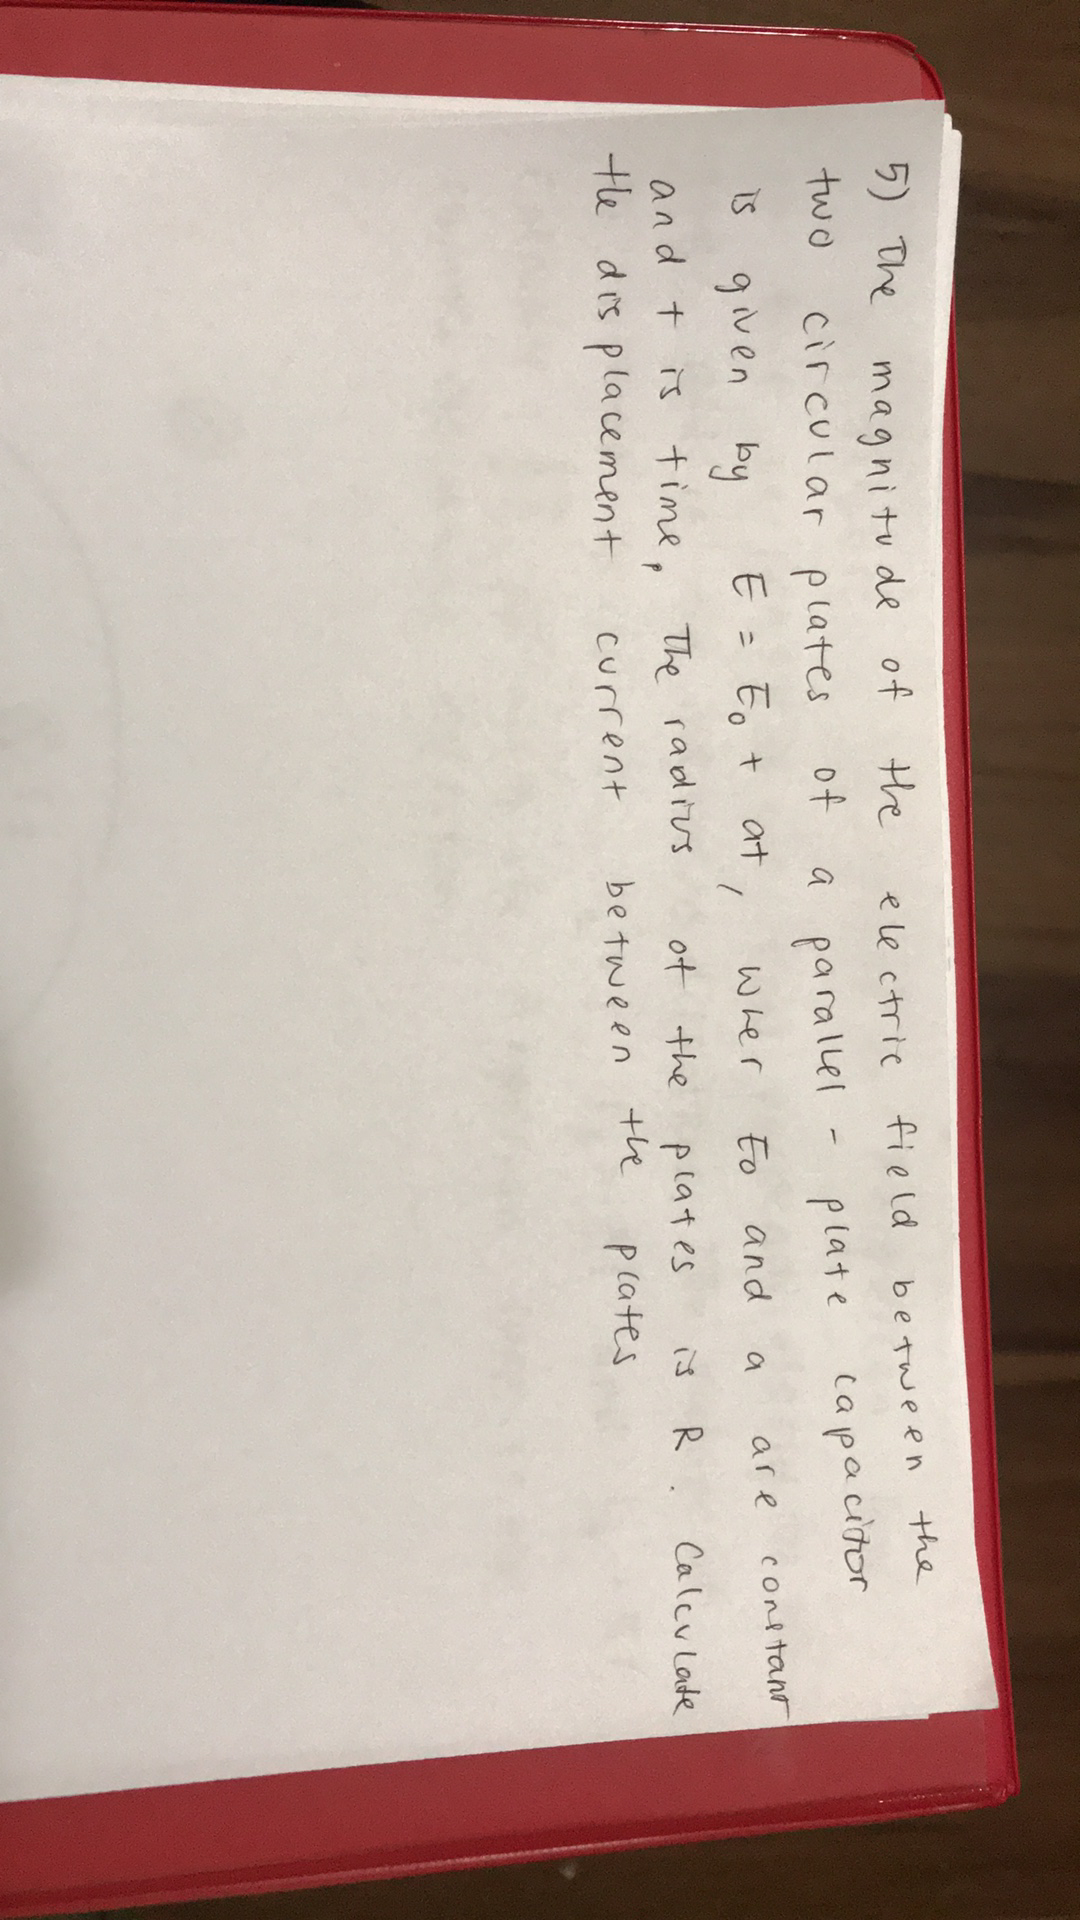 5) The magnitude of the electric field between the
two circular plates of a parallel - plate capacitor
is given by E = E₀ + at, wher Eo and a are constant
and t is time, The radius of the plates is R. Calculate
the displacement current between the plates